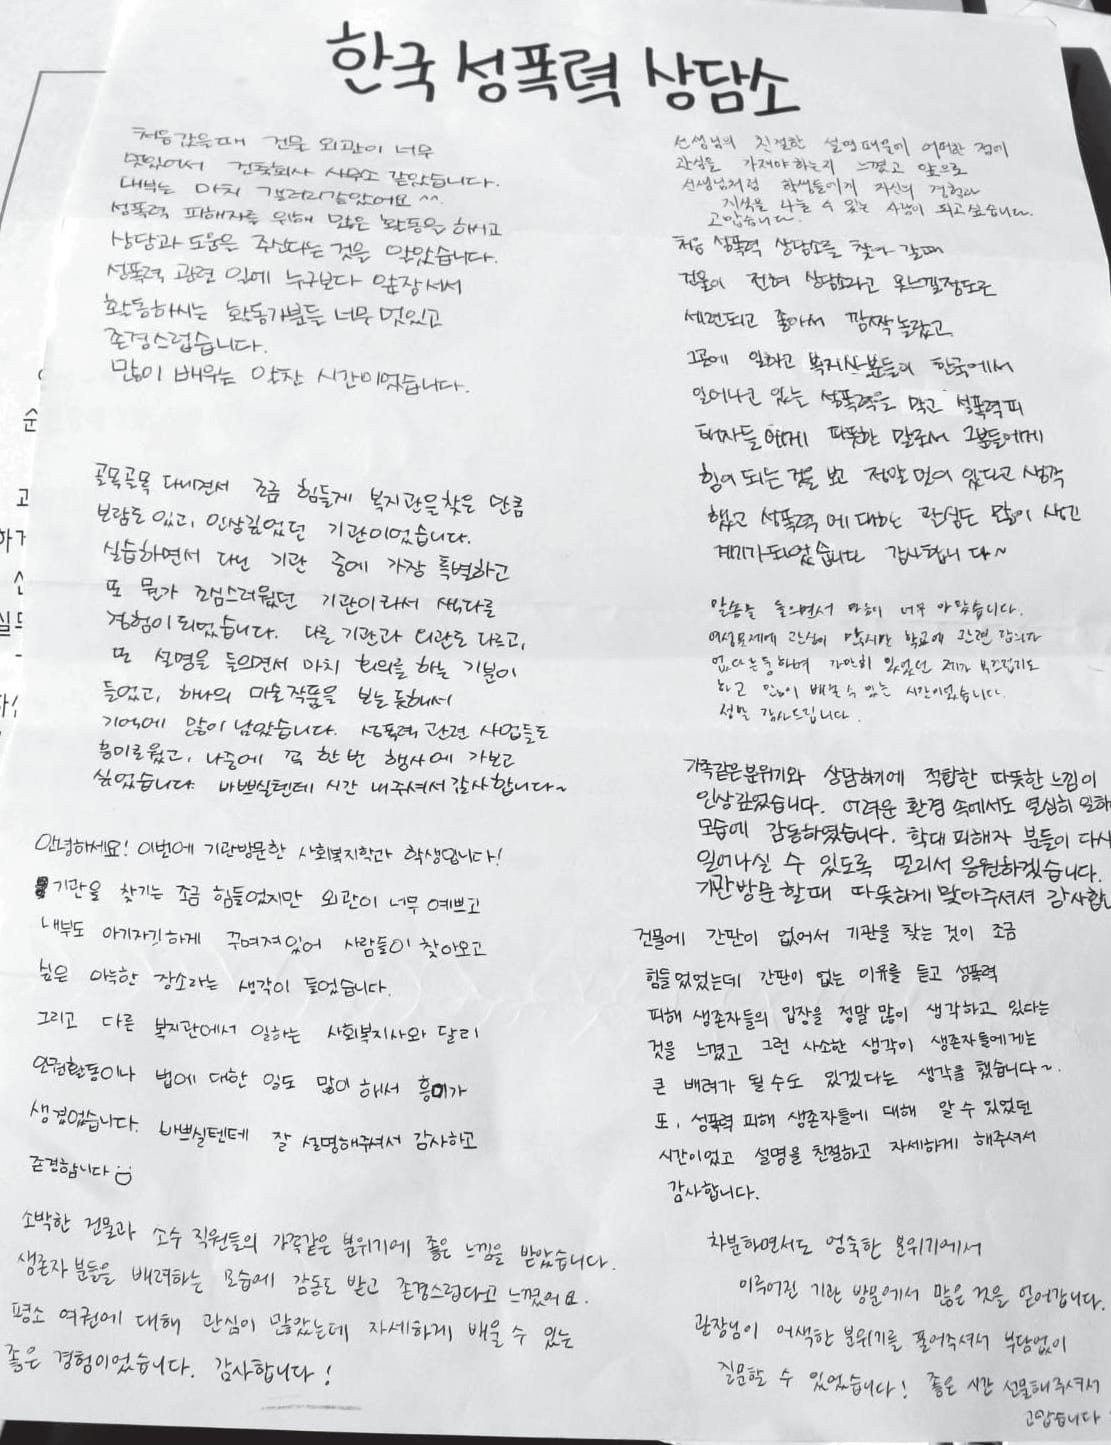 한국 성폭력 상담소
처음 갔을때 건물 외관이 너무
멋있어서 건축회사 사무소 같았습니다.
내부는 마치 갤러리같았어요 ^^
성폭력 피해자를 위해 많은 활동을 하시고
상담과 도움을 주신다는 것을 알았습니다.
성폭력 관련 일에 누구보다 앞장서서
활동하시는 활동가분들 너무 멋있고
존경스럽습니다.
많이 배우는 알찬 시간이었습니다.
골목골목 다니면서 조금 힘들게 복지관을 찾은 만큼
보람도 있고, 인상깊었던 기관이었습니다.
실습하면서 다닌 기관 중에 가장 특별하고
또 뭔가 조심스러웠던 기관이라서 색다를
경험이 되었습니다. 다른 기관과 외관도 다르고,
또 설명을 들으면서 마치 회의를 하는 기분이
들었고, 하나의 미술작품을 보는 듯해서
기억에 많이 남았습니다. 성폭력 관련 사업들도
흥미로웠고, 나중에 꼭 한번 행사에 가보고
싶었습니다. 바쁘실텐데 시간 내주셔서 감사합니다~
안녕하세요! 이번에 기관방문한 사회복지학과 학생입니다!
기관을 찾기는 조금 힘들었지만 외관이 너무 예쁘고
내부도 아기자기하게 꾸며져있어 사람들이 찾아오고
싶은 아늑한 장소라는 생각이 들었습니다.
그리고 다른 복지관에서 일하는 사회복지사와 달리
인권활동이나 법에 대한 일도 많이 해서 흥미가
생겼었습니다. 바쁘실텐데 잘 설명해주셔서 감사하고
존경합니다
소박한 건물과 소수 직원들의 가족같은 분위기에 좋은 느낌을 받았습니다.
생존자 분들을 배려하는 모습에 감동도 받고 존경스럽다고 느꼈어요.
평소 여권에 대해 관심이 많았는데 자세하게 배울 수 있는
좋은 경험이었습니다. 감사합니다!
선생님의 친절한 설명 때문에 어떠한 점에
관심을 가져야 하는지 느꼈고 앞으로
선생님처럼 학생들에게 자신의 경험과
지식을 나눌 수 있는 사람이 되고 싶습니다.
고맙습니다.
처음 성폭력 상담소를 찾아 갈때
건물이 전혀 상담소라고 못느낄정도로
세련되고 좋아서 깜짝놀랐고
그곳에 일하고 복지사분들이 한국에서
일어나고 있는 성폭력을 막고 성폭력피
해자들에게 따뜻한 말로서 그분들에게
힘이 되는 걸을 보고 정말 멋이 있다고 생각
했고 성폭력에 대하는 관심도 많이 생긴
계기가 되었습니다 감사합니다~
말씀을 들으면서 많이 너무 와 닿았습니다.
여성문제에 관심이 많지만 학교에 관련
없다는 등 하며 가만히 있었던 제가 부끄럽기도
하고 많이 배울 수 있는 시간이었습니다.
정말 감사드립니다.
가족같은분위기와 상담하기에 적합한 따뜻한 느낌이
인상깊었습니다. 어려운 환경 속에서도 열심히 일하
모습에 감동하였습니다. 학대 피해자 분들이 다시
일어나실 수 있도록 멀리서 응원하겠습니다.
기관방문 할때 따뜻하게 맞아주셔서 감사합니
건물에 간판이 없어서 기관을 찾는 것이 조금
힘들었었는데 간판이 없는 이유를 듣고 성폭력
피해 생존자들의 입장을 정말 많이 생각하고 있다는
것을 느꼈고 그런 사소한 생각이 생존자들에게는
큰 배려가 될수도 있겠다는 생각을 했습니다~.
또, 성폭력 피해 생존자들에 대해 알 수 있었던
시간이었고 설명을 친절하고 자세하게 해주셔서
감사합니다.
차분하면서도 엄숙한 분위기에서
이루어진 기관 방문에서 많은 것을 얻어갑니다.
관장님이 어색한 분위기를 풀어주셔서 부담없이
질문할 수 있었습니다! 좋은 시간 선물해주셔서
고맙습니다